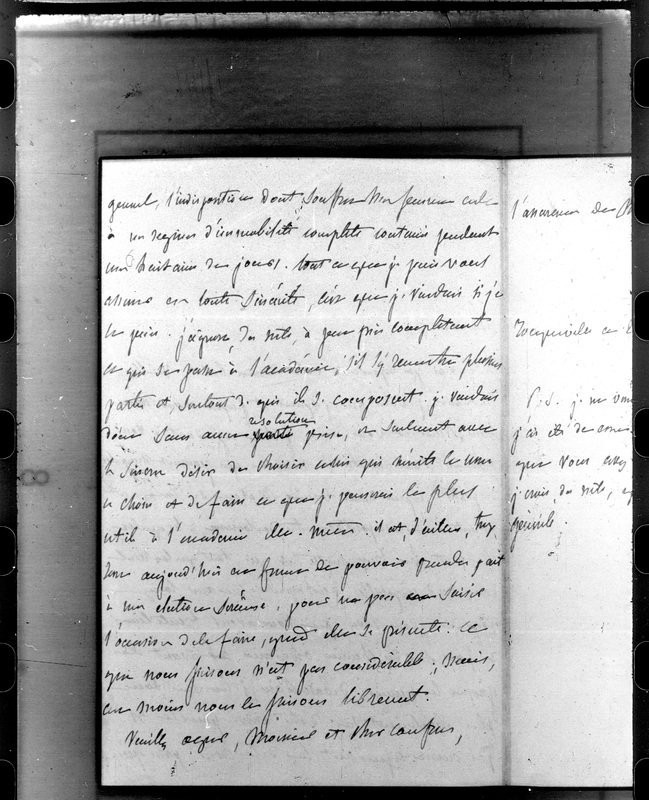 genoul, l'indisposition dont souffre
à un régime d'immobilité complète contenu pendant
une huitaine de jours. tout ce que je puis vous
assurer en toute sincérité, c'est que je viendrai si je
le puis. j'ignore, du reste, à peu près complètement
ce qui se passe à l'académie, s'il s'y rencontre plusieurs
partis et surtout de qui ils se composent. je viendrais
donc sans aucun resolution prise, et seulement avec
le sincère désir de choisir celui qui mérite le mieux
ce choix et de faire ce que je penserais le plus
utile à l'académie elle-même. il est, d'ailleurs, trop
rare aujourd'hui en france de pouvoir prendre part
à une élection sérieuse, pour ne pas saisir
l'occasion de le faire, quand elle se présente. Ce
que nous faisons n'est pas considérable; mais,
au moins nous le faisons librement.
Veuillez agréer, Monsieur et cher confrère,
l'assurance de
Tocqueville ce
P.S. je ne
j'ai été de
que vous
je crois, du reste,